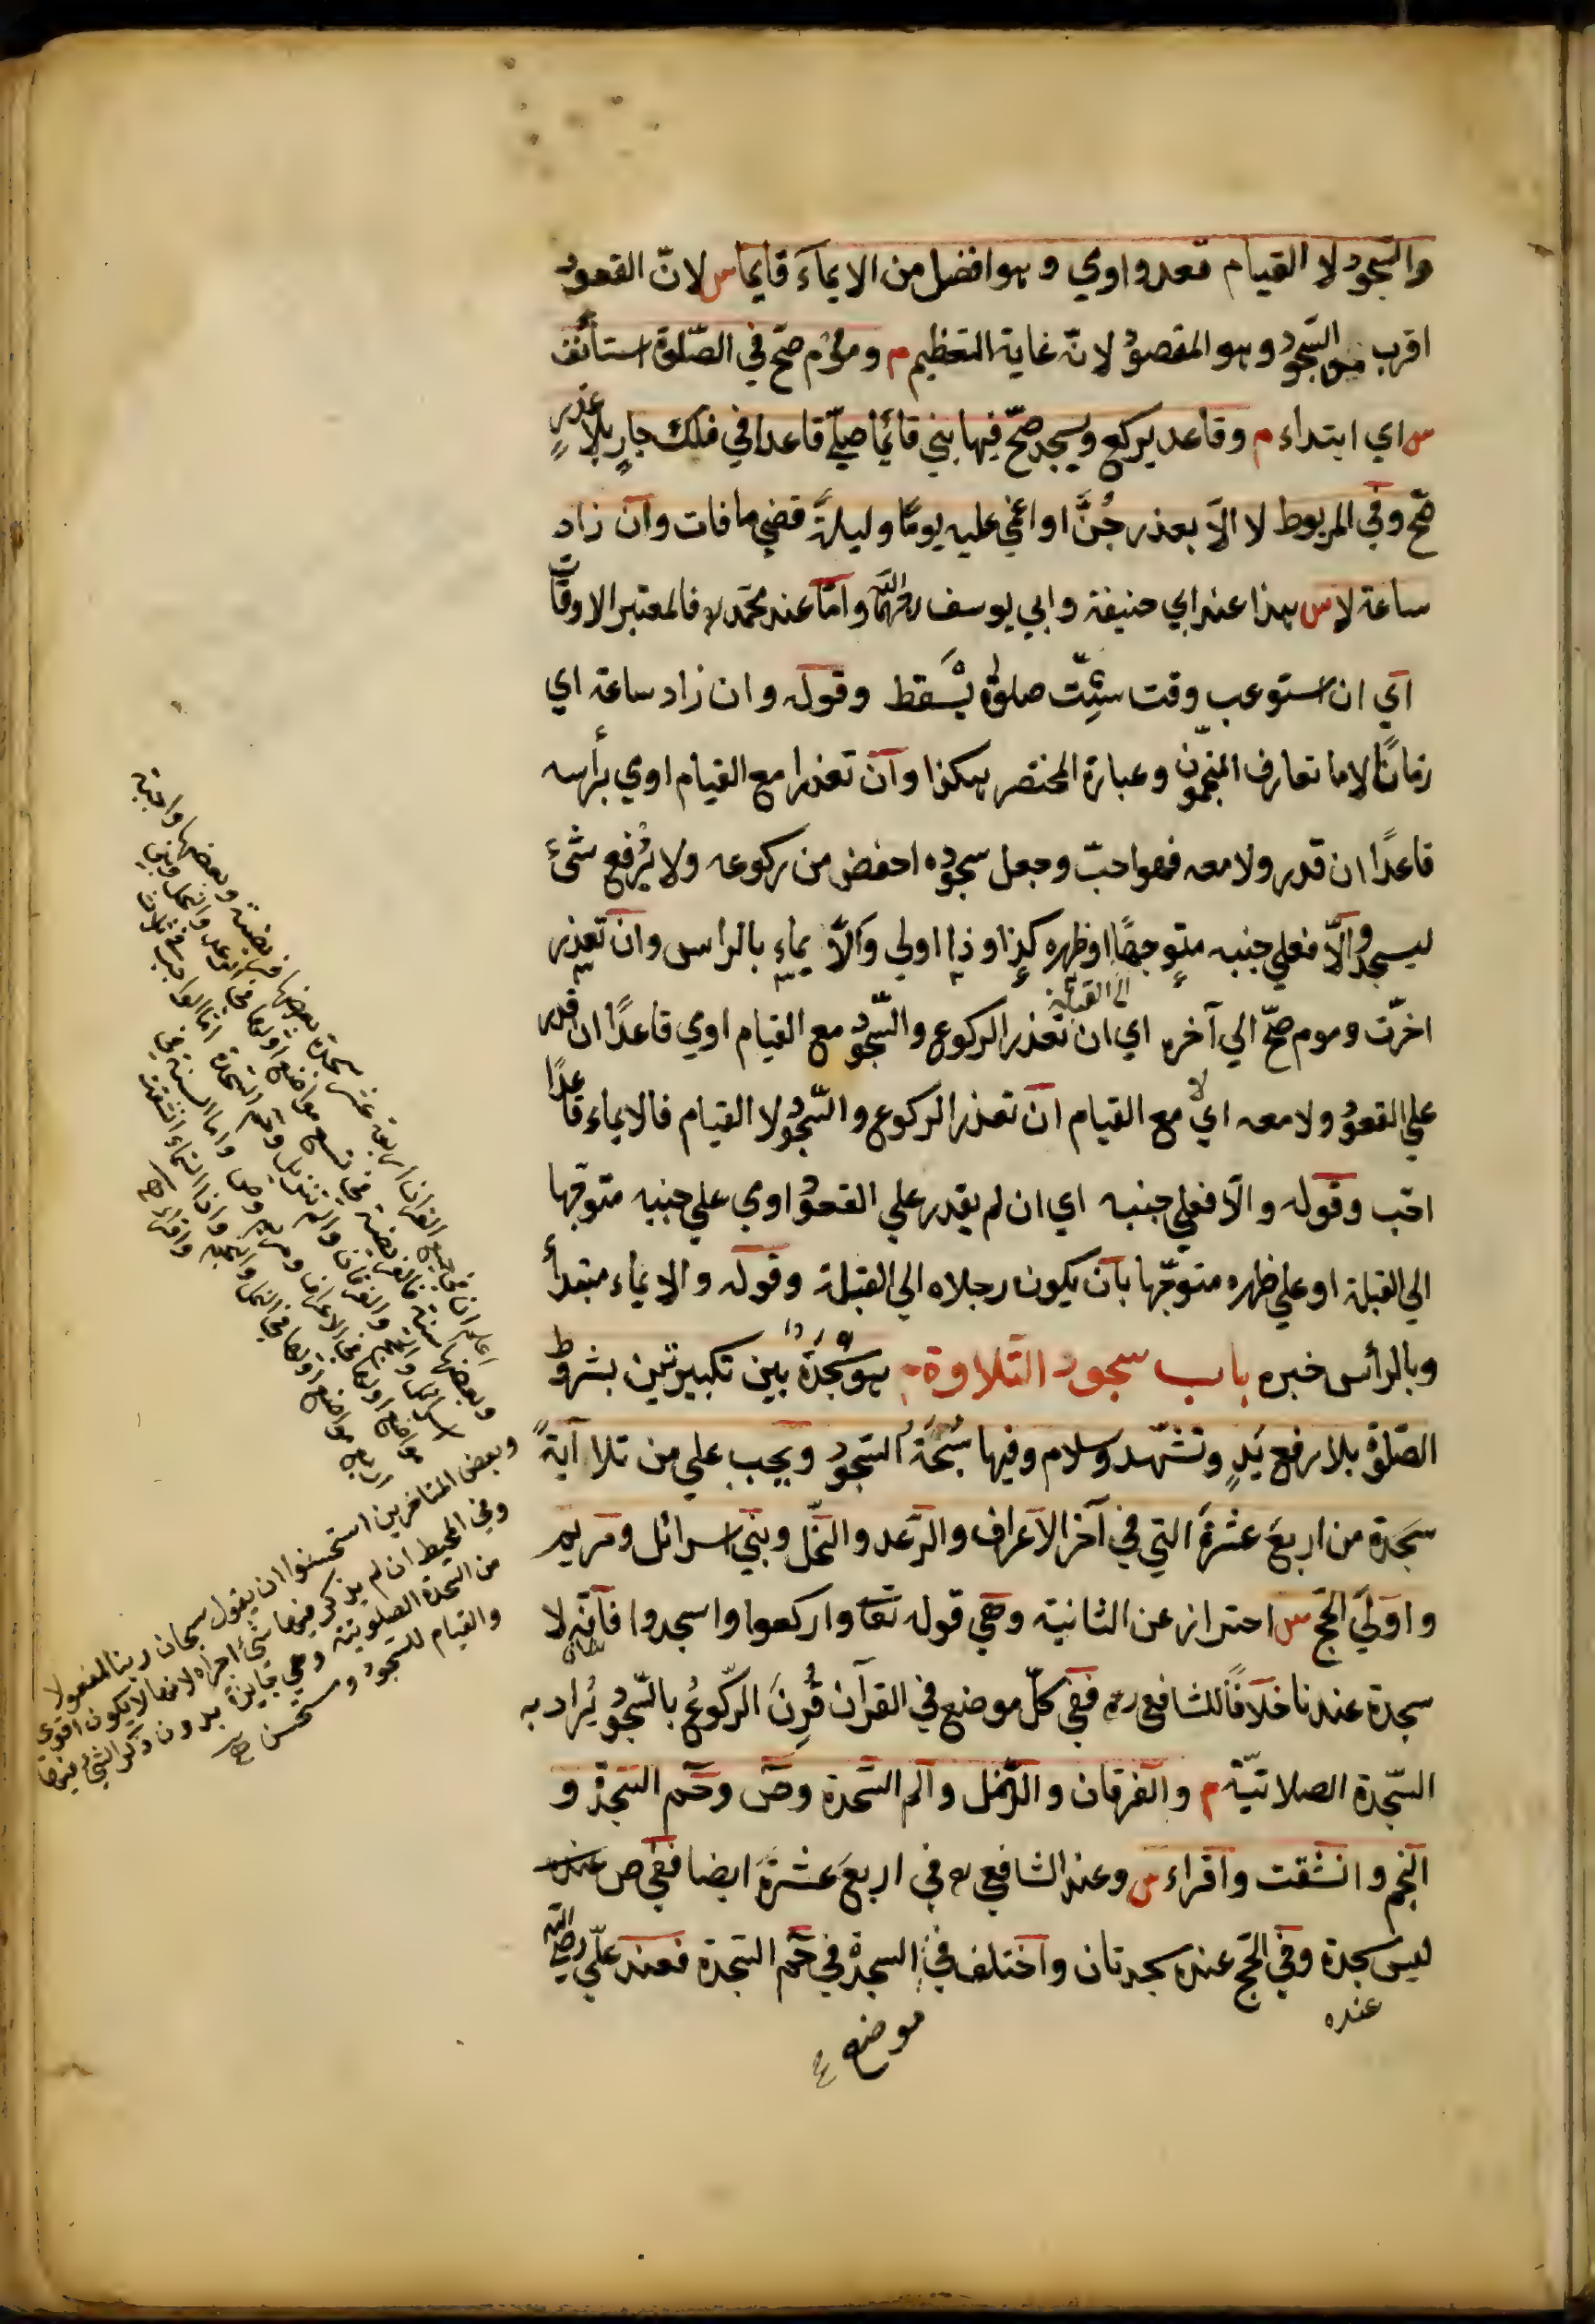 والسّجود لا القيام قعد واومي وهو افضل من الايماء قايما س لانّ القعود
اقرب من السّجود وهو المقصود لانّه غاية التعظيم م ومؤم صحّ في الصّلوة استأنف
س اي ابتداء م وقاعد يركع ويسجد صحّ فيها بني قائما صلّي قاعدا في فلك جارٍ بلا عذرٍ
صحّ وفي المربوط لا الّا بعذر جُنَّ او اغمي عليه يومًا وليلةً قضي ما فات وان زاد
ساعة لا س هذا عند ابي حنيفة وابي يوسف رحمهما الله وامّا عند محمّد رح فالمعتبر الاوقات
اي ان استوعب وقت ستّ صلوة يسقط وقوله وان زاد ساعة اي
زمانًا لا ما تعارف المنجّمون وعبارة المختصر هكذا وان تعذرا مع القيام اومي برأسه
قاعدًا ان قدر ولا معه فهو احبّ وجعل سجوده اخفض من ركوعه ولا يُرفع شئ
ليسجد والّا فعلي جنبه متوجهًا او ظهره كذا وذا اولي والّا يماء بالراس وان تعذر
الي القبلة
اخرّت وموم صحّ الي آخره اي ان تعذر الركوع والسّجود مع القيام اومي قاعدًا ان قدر
علي القعود ولا معه اي لا مع القيام ان تعذر الركوع والسّجود لا القيام فالايماء قاعدًا
احّب وقوله والّا فعلي جنبه اي ان لم يقدر علي القعود اومي علي جنبيه متوجّها
الي القبلة او علي ظهره متوجّها بان يكون رجلاه الي القبلة وقوله والايماء مبتدأ
وبالرأس خبره باب سجود التّلاوة هو سجدةٌ بين تكبيرتين بشروط
الصّلوة بلا رفع يَدٍ وتشهّد وسلام وفيها سُبْحَةُ السّجود ويجب علي من تلا آيةً
سجدة من اربعَ عشرةَ التي في آخر الاعراف والرّعد والنّحل وبني اسرائل ومريم
واولَي الحجّ س احتراز عن الثانية وهي قوله تعا واركعوا واسجدوا فانّه لا
سجدة عندنا خلافًا للشافعي رح ففي كلّ موضع في القرآن قُرِنَ الرّكوعُ بالسّجود يُراد به
السّجدة الصلاتيّة م والفرقان والنّمل والم السّجدة وص وحم السّجدة و
النجم وانشقت واقراء س وعند الشافعي رح في اربعَ عشرةَ ايضا ففي ص عنده
ليس سجدة وفي الحجّ عنده سجدتان واختلف في السجدة في حم السّجدة فعند علّي رضي الله
عنده
موضع
وبعض المتاخرين استحسنوا ان يقول سبحان ربنا لمفعولا
وفي المحيط ان لم يذكر فيها شئ اجزاه لانها لا تكون اقوي
من السّجدة الصلوتية وهي جايزة بدون ذكر الشئ فيها
والقيام للسّجود مستحسن